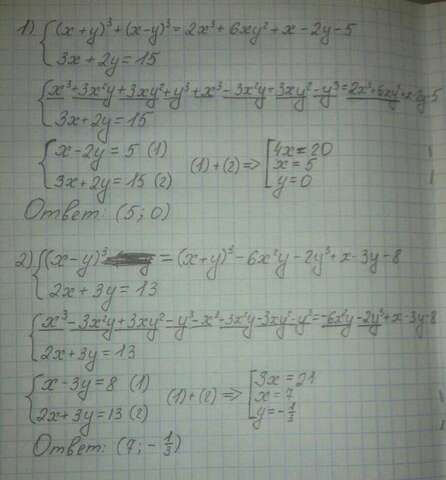 1) { (x+y)³+(x-y)³ = 2x³+6xy²+x-2y-5
3x+2y=15
{ x³+3x²y+3xy²+y³+x³-3x²y+3xy²-y³=2x³+6xy²+x-2y-5
3x+2y=15
{ x-2y=5 (1)
3x+2y=15 (2)
(1)+(2)=> [ 4x=20
x=5
y=0
Ответ: (5; 0)
2) { (x-y)³ = (x+y)³-6x²y-2y³+x-3y-8
2x+3y=13
{ x³-3x²y+3xy²-y³-x³-3x²y-3xy²-y³=-6x²y-2y³+x-3y-8
2x+3y=13
{ x-3y=8 (1)
2x+3y=13 (2)
(1)+(2) => [ 3x=21
x=7
y=-1/3
Ответ: (7; -1/3)